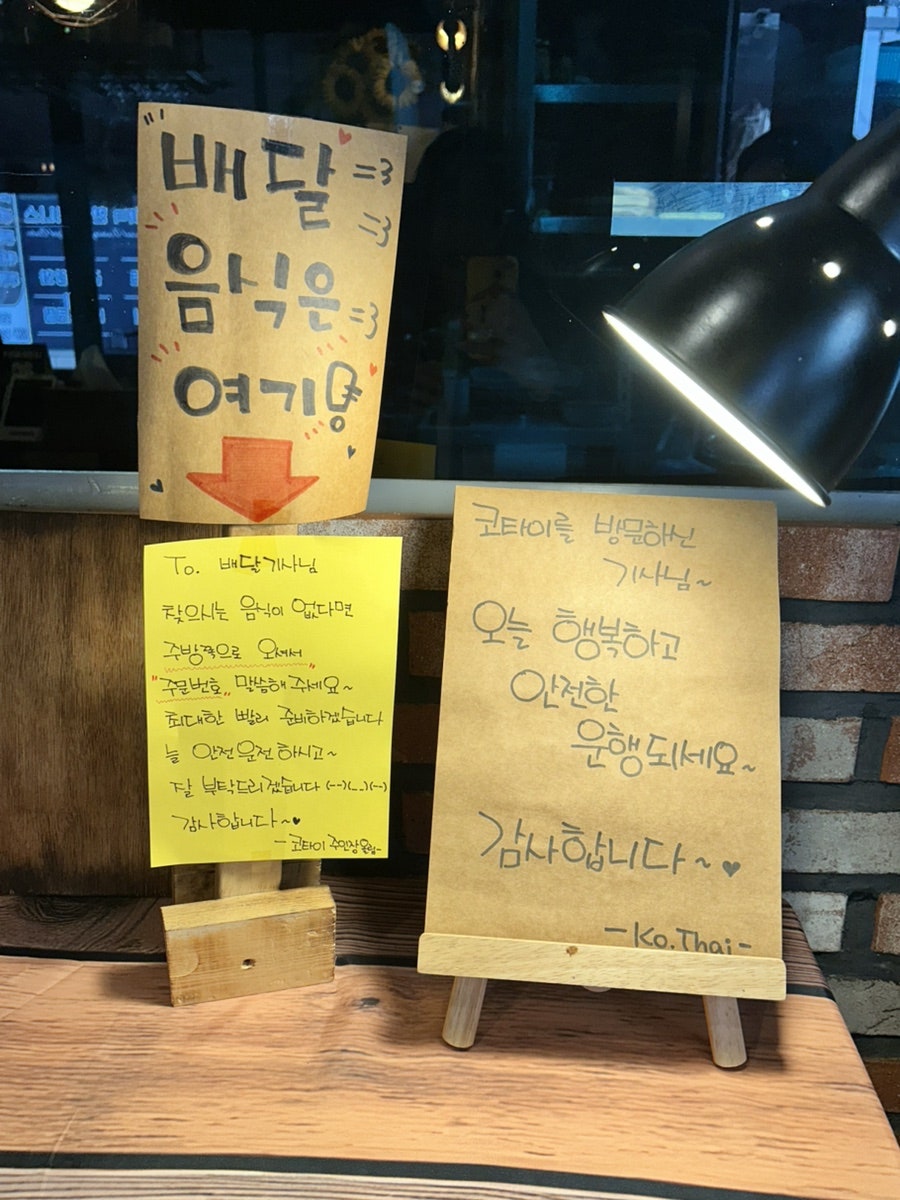 배달 =3
=3
음식은 =3
여기용
To. 배달기사님
찾으시는 음식이 없다면
주방쪽으로 오셔서
"주문번호" 말씀해주세요~
최대한 빨리 준비하겠습니다
늘 안전운전하시고~
잘 부탁드리겠습니다 (--)(__)(--)
감사합니다~♥
-코타이 주인장올림-
코타이를 방문하신
기사님~
오늘 행복하고
안전한
운행되세요~
감사합니다~♥
-Ko.Thai-